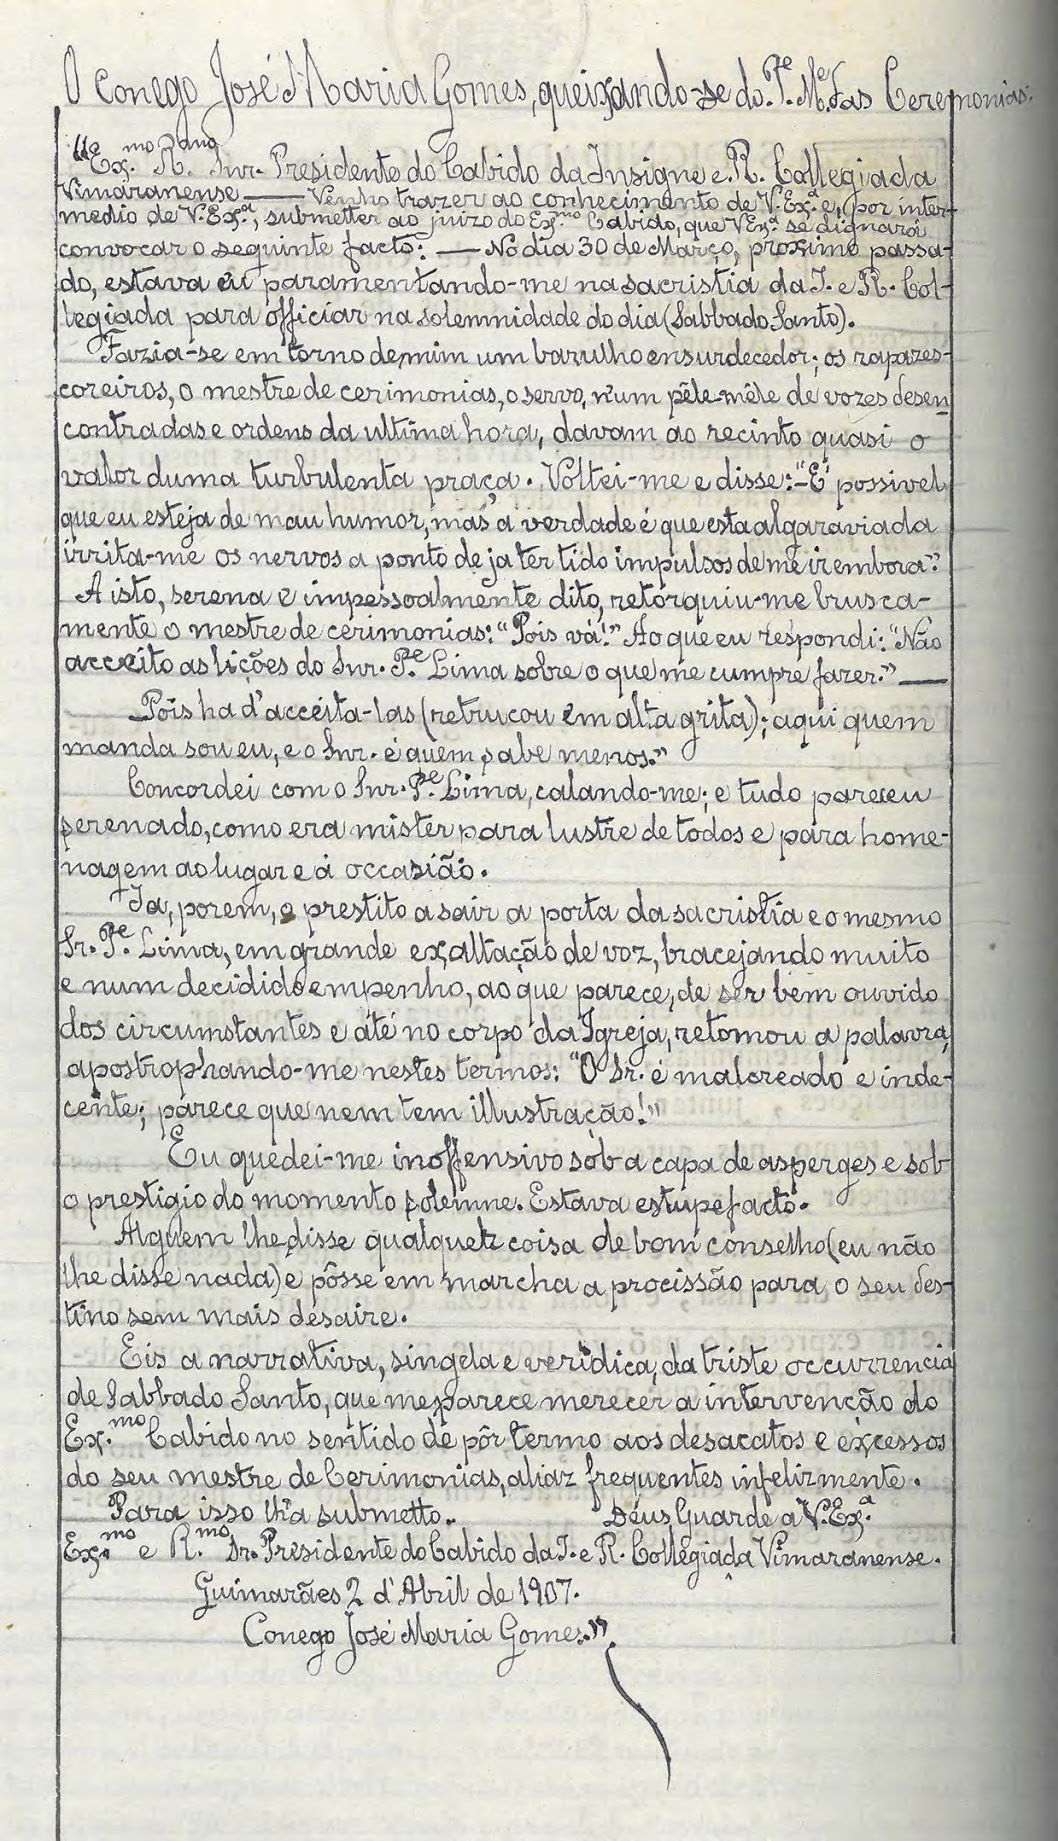 O Conego José Maria Gomes, queixando-se do P.e M.e das Ceremonias:
"Ex.mo R.ano Snr. Presidente do Cabido da Insigne e R. Collegiada
Vimaranense — Venho trazer ao conhecimento de V. Ex.a e, por inter-
medio de V. Ex.a, submetter ao juizo do Ex.mo Cabido, que V. Ex.a se dignará
convocar o seguinte facto: — No dia 30 de Março, proximo passa-
do, estava eu paramentando-me na sacristia da I. e R. Col-
legiada para officiar na solemnidade do dia (Sabbado Santo).
Fazia-se em torno de mim um barulho ensurdecedor; os rapazes-
coreiros, o mestre de cerimonias, o servo, n'um pêle-mêle de vozes desen
contradas e ordens da ultima hora, davam ao recinto quasi o
valor duma turbulenta praça. Voltei-me e disse: -"É possivel
que eu esteja de mau humor, mas a verdade é que esta algaraviada
irrita-me os nervos a ponto de ja ter tido impulsos de me ir embora."
A isto, serena e impessoalmente dito, retorquiu-me brusca-
mente o mestre de cerimonias: "Pois vá!" Ao que eu respondi: "Não
acceito as lições do Snr. P.e Lima sobre o que me cumpre fazer." —
Pois ha d'acceita-las (retrucou em alta grita); aqui quem
manda sou eu, e o Snr. é quem sabe menos."
Concordei com o Snr. P.e Lima, calando-me; e tudo pareceu
serenado, como era mister para lustre de todos e para home-
nagem ao lugar e á occasião.
Ia, porem, o prestito a sair a porta da sacristia e o mesmo
Sr. P.e Lima, em grande exaltação de voz, bracejando muito
e num decidido empenho, ao que parece, de ser bem ouvido
dos circumstantes e até no corpo da Igreja, retomou a palavra,
apostrophando-me nestes termos: "O Sr. é malcreado e inde-
cente; parece que nem tem illustração!"
Eu quedei-me inoffensivo sob a capa de asperges e sob
o prestigio do momento solemne. Estava estupefacto.
Alguem lhe disse qualquer coisa de bom conselho (eu não
lhe disse nada) e pôsse em marcha a procissão para o seu des-
tino sem mais desaire.
Eis a narrativa, singela e veridica, da triste occurrencia
de Sabbado Santo, que me parece merecer a intervenção do
Ex.mo Cabido no sentido de pôr termo aos desacatos e excessos
do seu mestre de Cerimonias, aliaz frequentes infelizmente.
Para isso lh'a submetto. Deus Guarde a V. Ex.a
Ex.mo e R.mo Sr. Presidente do Cabido da I. e R. Collegiada Vimaranense.
Guimarães 2 d'Abril de 1907.
Conego José Maria Gomes."